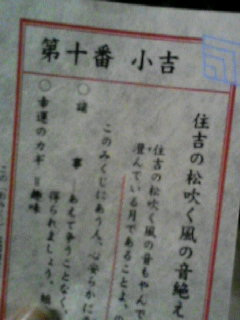 第十番 小吉
住吉の松吹く風の音絶え
住吉の松吹く風の音もやんで
澄んでいる月であることよ。の
このみくじにあう人、心安らかに
○諸 事=あえて争うことなく、
得られましょう、
○幸運のカギ=趣味